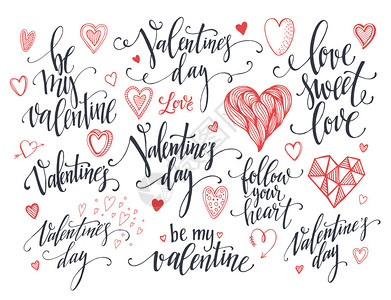 be
my
valentine
Valentines
day
love
sweet
love
Love
Valentines
Valentine's
day
follow
your
heart
Valentine's
day
be my
valentine
Valentine's
day